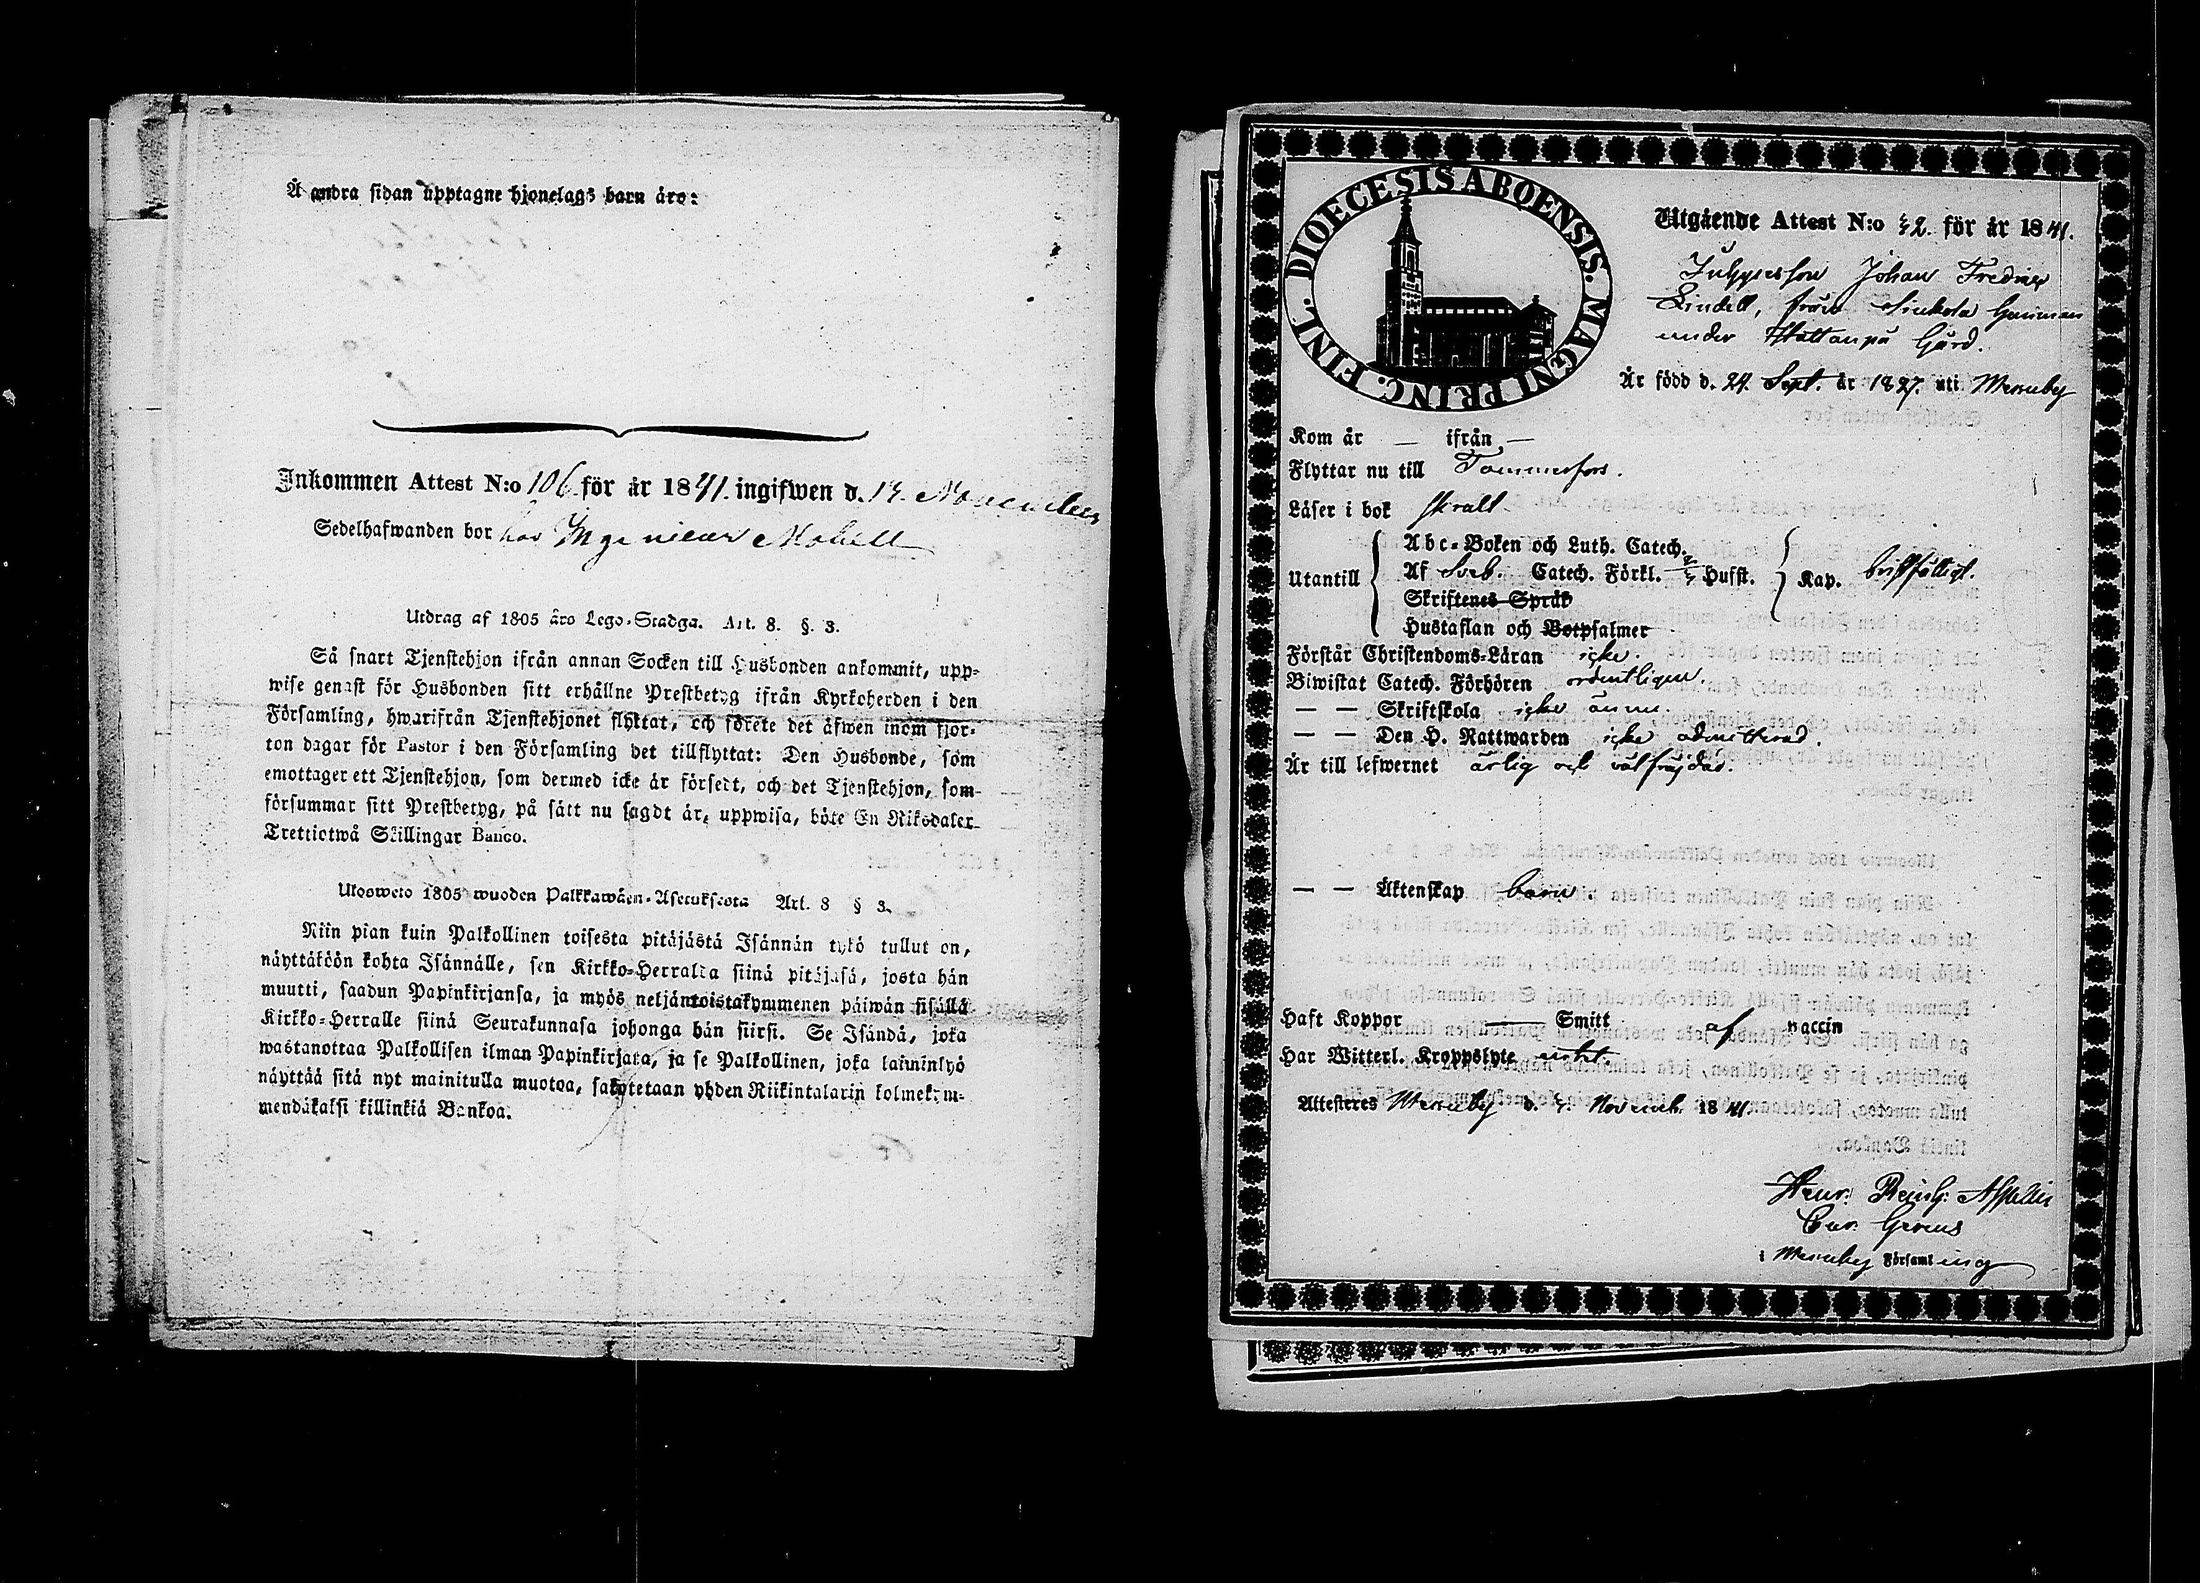 Å andra sidan upptagne hjonelags barn äro:
Inkommen Attest N:o 106 för år 1841. ingifwen d. 14. November
Sedelhafwanden bor hos Ingenieur
Utdrag af 1805 års Lego-Stadga. Art. 8. §. 3.
Så snart Tjenstehjon ifrån annan Socken till Husbonden ankommit, upp-
wise genast för Husbonden sitt erhållne Prestbetyg ifrån Kyrkoherden i den
Församling, hwarifrån Tjenstehjonet flyttat, och förete det äfwen inom fjor-
ton dagar för Pastor i den Församling det tillflyttat: Den Husbonde, som
emottager ett Tjenstehjon, som dermed icke är försedt, och det Tjenstehjon, som
försummar sitt Prestbetyg, på sätt nu sagdt är, uppwisa, böte En Riksdaler
Trettiotwå Skillingar Banco.
Ulosweto 1805 wuoden Palkkawäen-Asetuksesta Art. 8 § 3.
Niin pian kuin Palkollinen toisesta pitäjästä Isännän tykö tullut on,
näyttäköön kohta Isännälle, sen Kirkko-Herralda siinä pitäjäsä, josta hän
muutti, saadun Papinkirjansa, ja myös neljäntoistakymmenen päiwän sisällä
Kirkko-Herralle siinä Seurakunnasa johonga hän siirsi. Se Isändä, joka
wastanottaa Palkollisen ilman Papinkirjata, ja se Palkollinen, joka laiminlyö
näyttää sitä nyt mainitulla muotoa, sakotetaan yhden Riikintalarin kolmekym-
mendäkaksi killinkiä Bankoa.
DIOECESIS ABOENSIS. MAGNI PRINC. FINL.
Utgående Attest N:o 42 för år 1841.
Johan Fredric
Lindell, från
under Hattanpä Gård.
Är född d. 24. Sept. år 1827. uti Messuby
Kom år — ifrån —
Flyttar nu till Tammerfors.
Läser i bok swalt.
Utantill
Abc-Boken och Luth. Catech.
Af Sveb. Catech. Förkl. Hufst. Kap. bristfälligt.
Skriftenes Språk
Hustaflan och Botpsalmer
Förstår Christendoms-Läran icke.
Biwistat Catech. Förhören ordentligen.
— — Skriftskola icke ännu.
— — Den H. Nattwarden icke admitterad.
Är till lefwernet ärlig och välfrejdad.
— — Äktenskap barn.
Haft Koppor —— Smitt af vaccin
Har Witterl. Kroppslyte intet.
Attesteres Messuby d. 4 Novemb. 1841.
Henr. Reinh. Aspelin
Cur. Gerens
i Messuby Församling